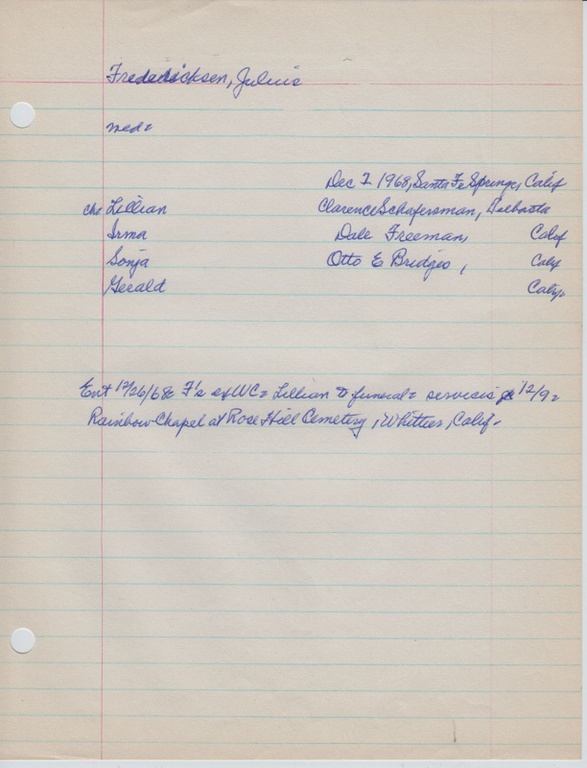 Fredericksen, Julius
med=
Dec 7 1968, Santa Fe Springs, Calif
chs Lillian Clarence Schafersman,
Irma Dale Freeman, Calif
Sonja Otto E Bridges, Calif
Gerald Calif.
Ent 12/26/68 F's of WC= Lillian to funeral= services 12/9=
Rainbow Chapel at Rose Hill Cemetery, Whittier, Calif.